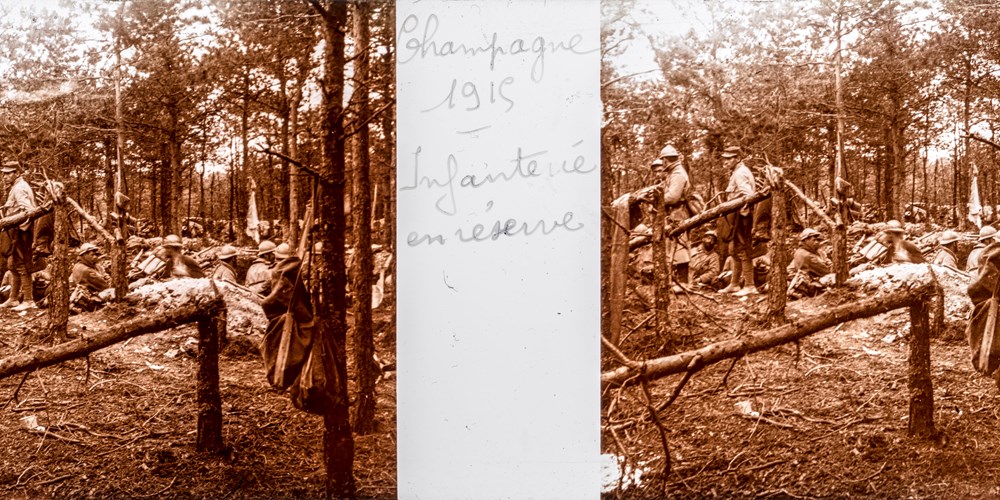 Champagne
1915
Infanterie
en réserve